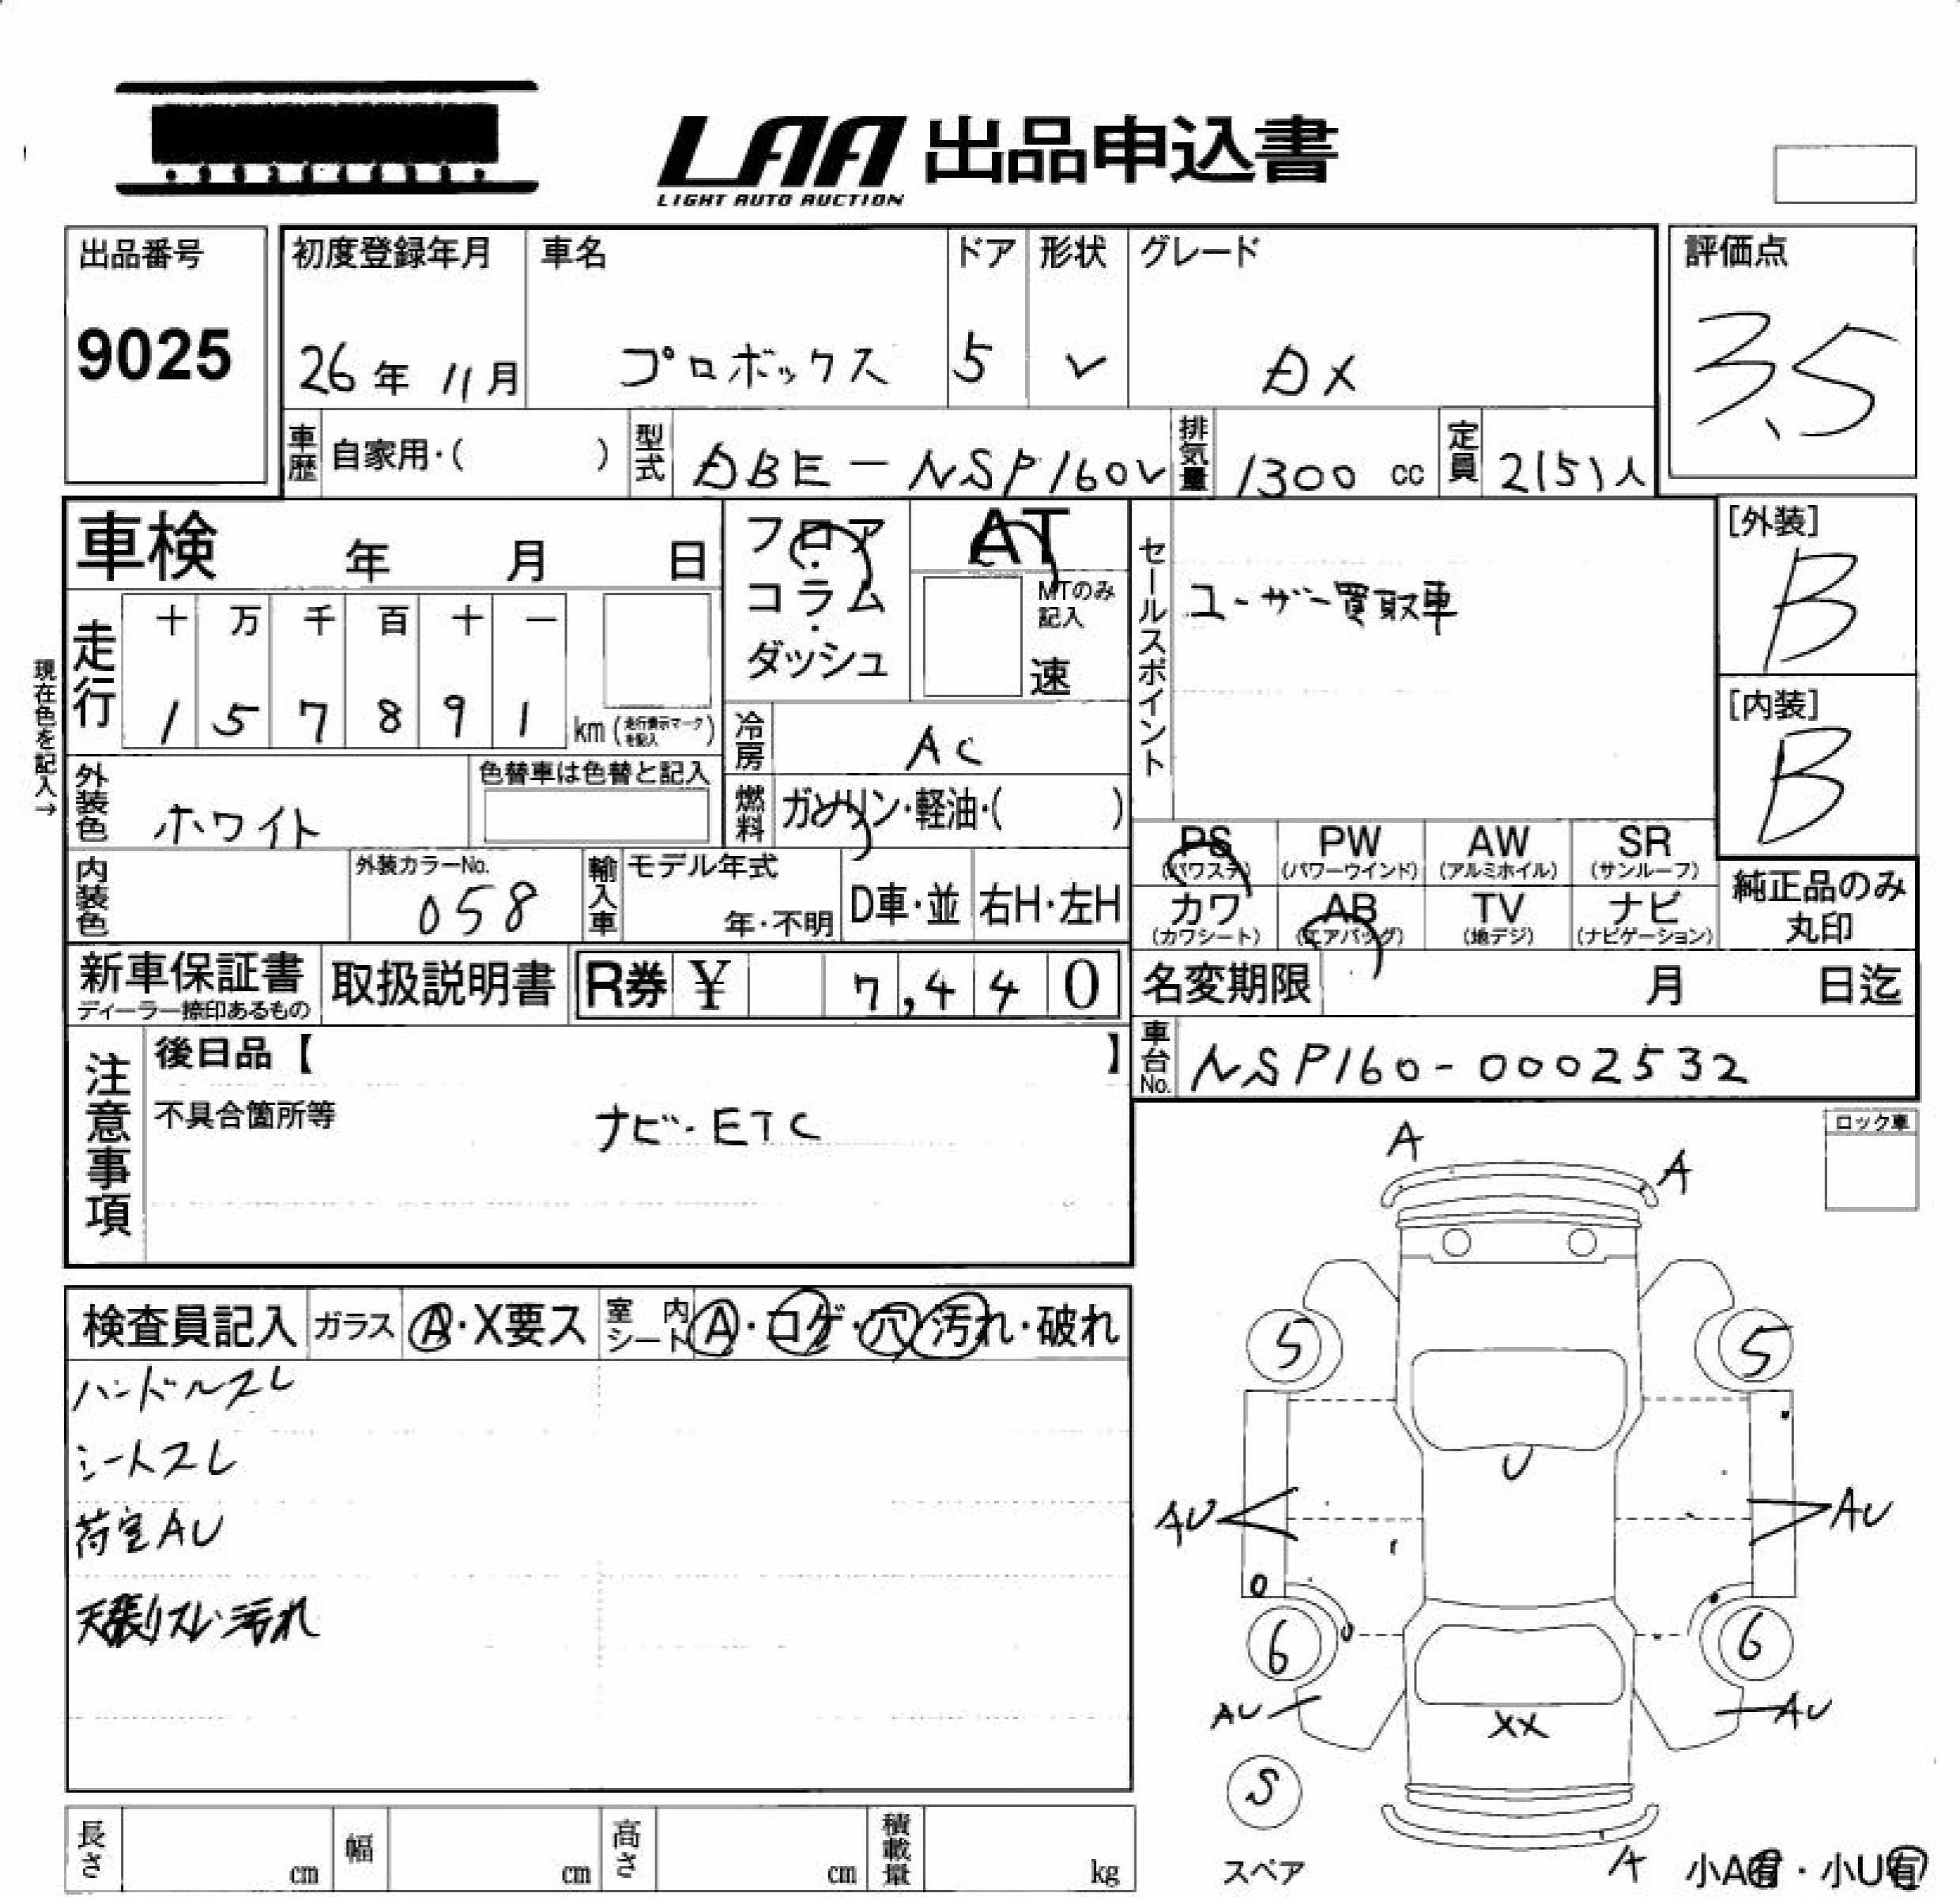 LAA 出品申込書
LIGHT AUTO AUCTION
出品番号
9025
初度登録年月 車名 ドア 形状 グレード
26年 11月 プロボックス 5 V DX
評価点
3.5
車歴 自家用・( ) 型式 DBE-NSP160V 排気量 1300 cc 定員 2(5)人
車検 年 月 日
フロア・コラム・ダッシュ
AT
MTのみ記入
速
セールスポイント
ユーザー買取車
[外装]
B
[内装]
B
現在色を記入→
走行 十 万 千 百 十 一
1 5 7 8 9 1 km (走行表示マークを記入)
冷房 AC
外装色 ホワイト 色替車は色替と記入
燃料 ガソリン・軽油・( )
PS (パワステ) PW (パワーウインド) AW (アルミホイル) SR (サンルーフ)
カワ (カワシート) AB (エアバッグ) TV (地デジ) ナビ (ナビゲーション)
純正品のみ丸印
内装色 外装カラーNo. 058 輸入車 モデル年式 年・不明 D車・並 右H・左H
新車保証書 ディーラー捺印あるもの 取扱説明書 R券 ¥ 7,440
名変期限 月 日迄
車台No. NSP160-0002532
注意事項
後日品【 】
不具合箇所等
ナビ・ETC
ロック車
A
A
検査員記入 ガラス A・X要ス 室内シート A・コゲ・穴・汚れ・破れ
ハンドルスレ
シートスレ
荷室AU
天張りスレ汚れ
5 5
U
AU AU
6 6
AU XX AU
S
スペア
A
小A有・小U有
長さ cm 幅 cm 高さ cm 積載量 kg